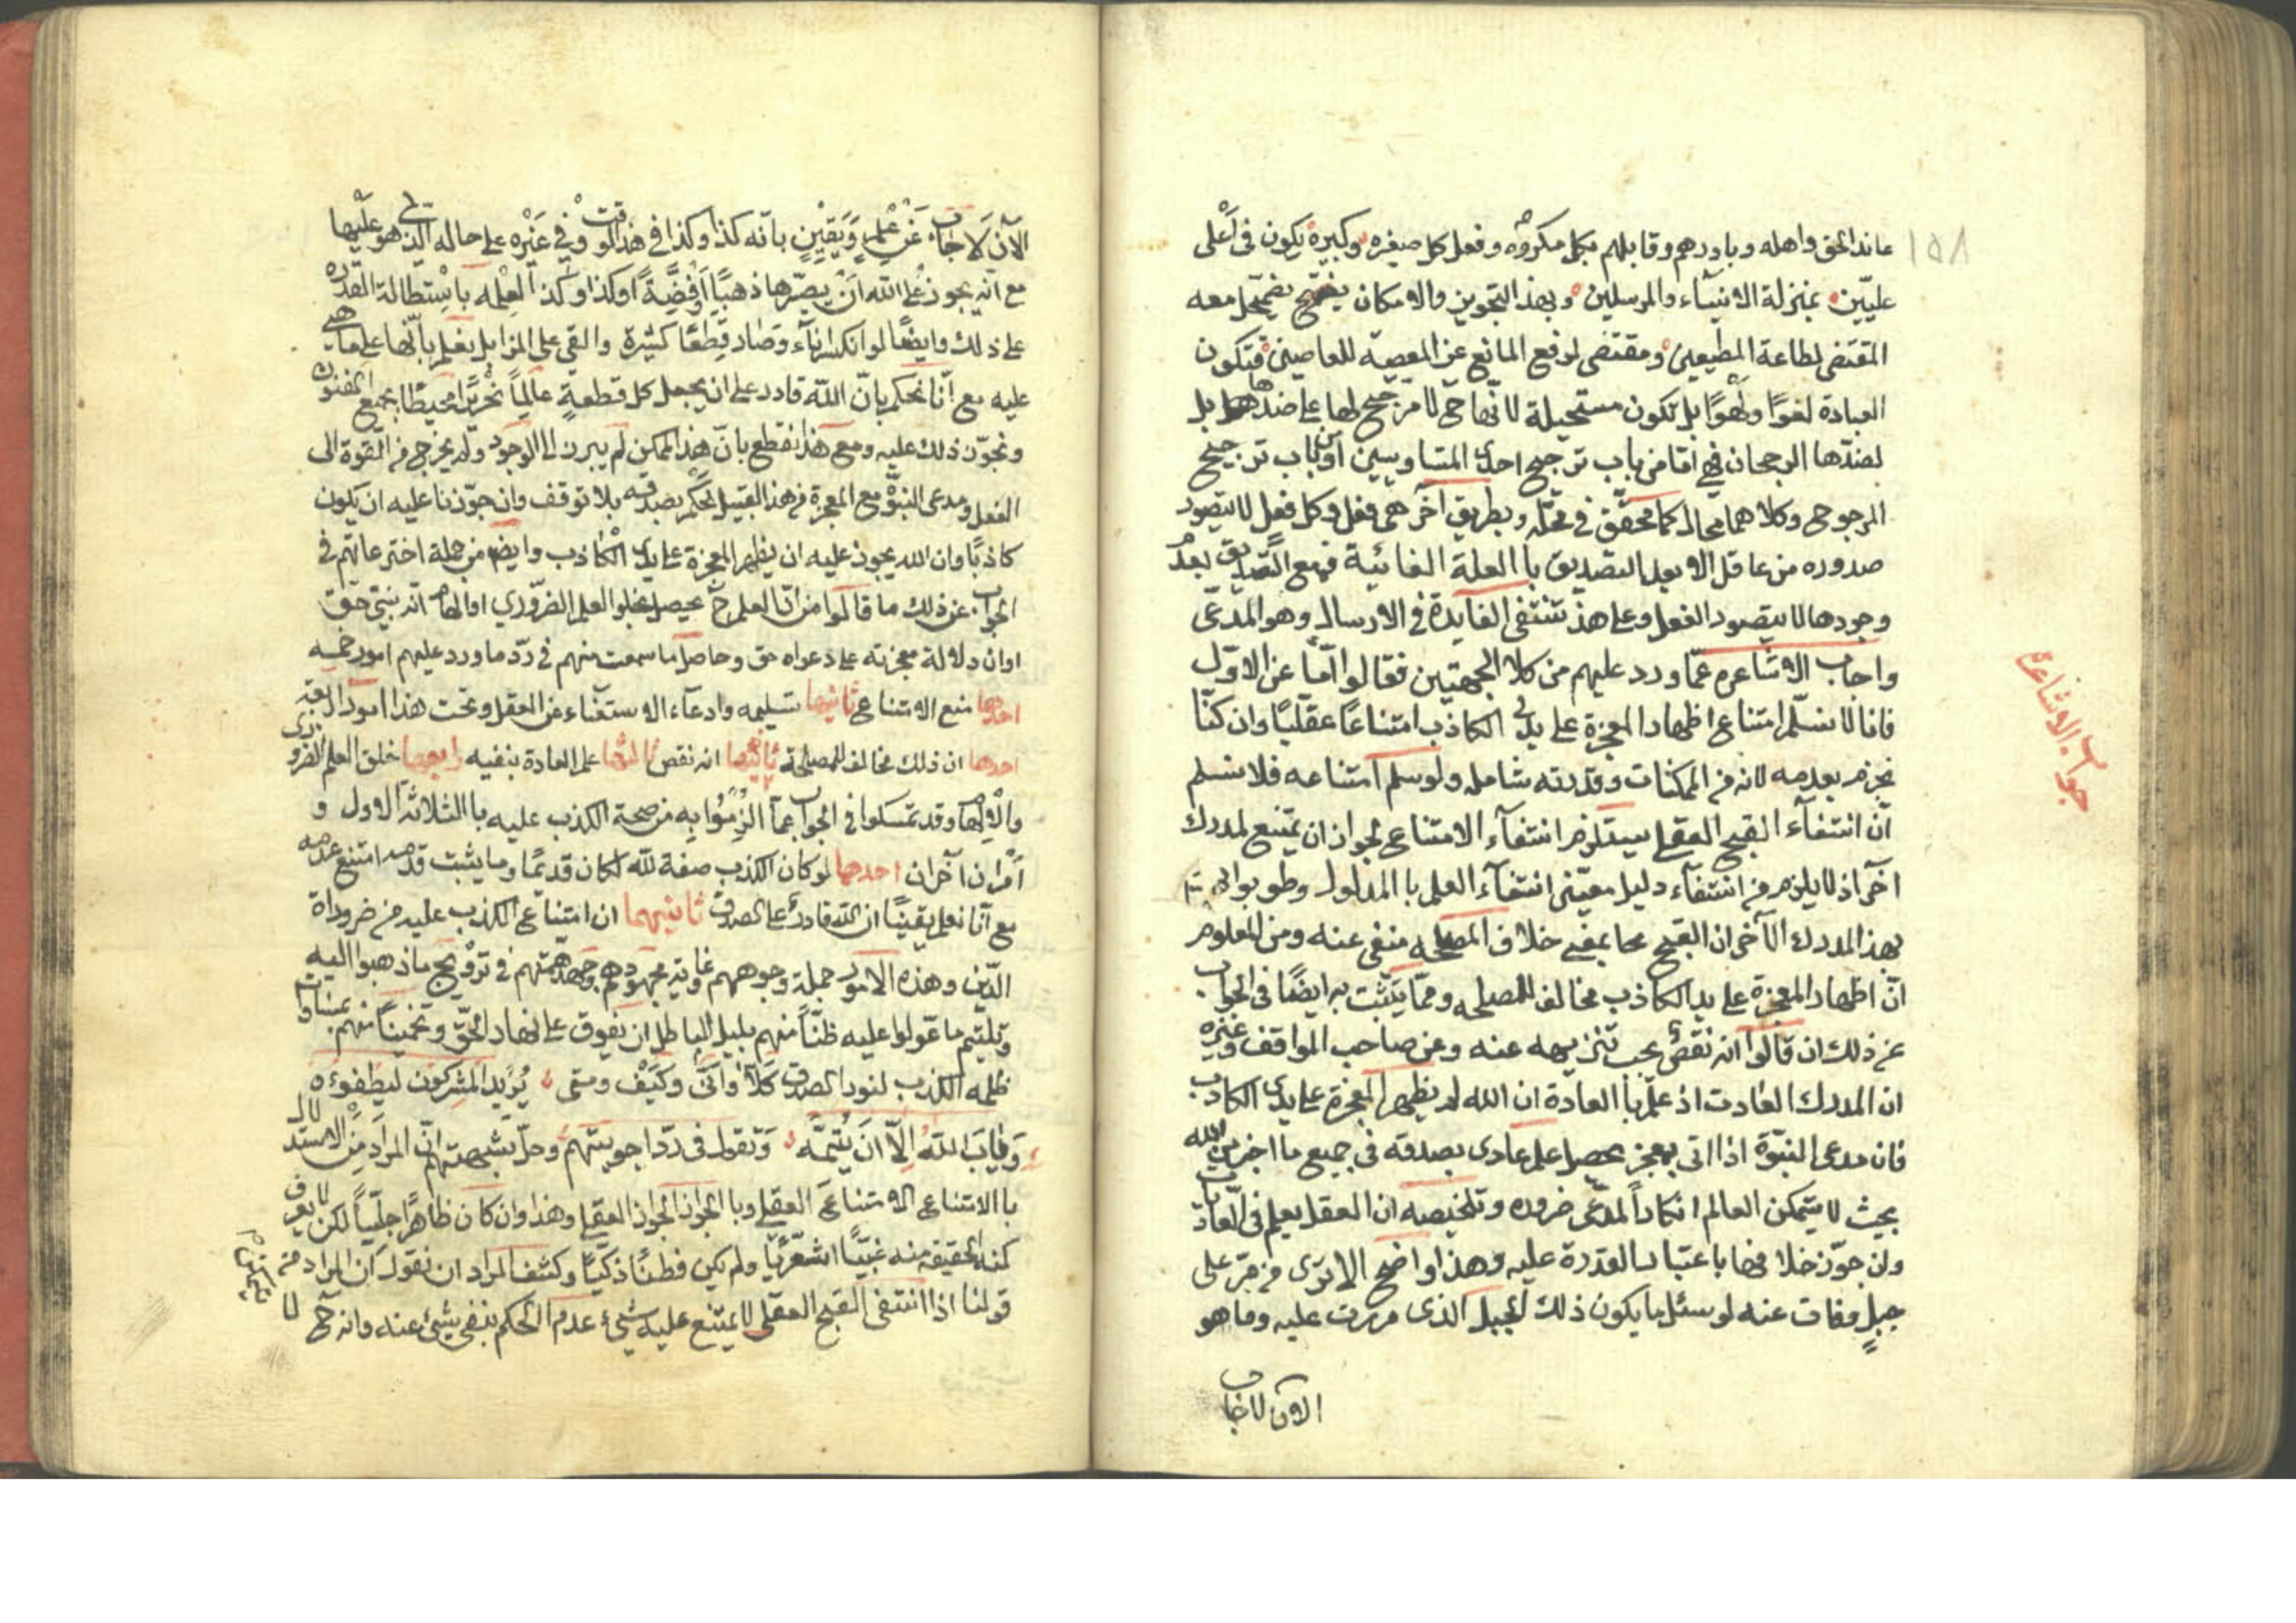 ١٥٨
عاند الحق واهله وبادرهم وقابلهم بكل مكروه وفعل كل صغيره وكبيرة يكون فى أعلى
عليّين بمنزلة الانبيآء والمرسلين وبهذ التجويز والامكان يضمحل معه
المقتضى لطاعة المطيعين ومقتضى لرفع المانع عن المعصيه للعاصين فتكون
العبادة لغوًا ولهوًا بل تكون مستحيلة لانّها ح لا مرجّح لها على ضدها بل
لضدّها الرجحان فهى امّا من باب ترجيح احدى المتساويين او من باب ترجيح
المرجوح وكلاهما محال كما محقّق فى محلّه وبطريق آخر هى فعل وكل فعل لا يتصور
صدوره من عاقل الا بعد التصديق با العلة الغائية فمع التصديق بعدم
وجودها لا يتصور الفعل وعلى هذ تنتفى الفايدة فى الارسال وهو المدعى
واجاب الاشاعره عمّا ورد عليهم من كلا الجهتين فقالوا امّا عن الاوّل
جواب الاشاعرة
فانا لا نسلّم امتناع اظهار المعجزة على يدى الكاذب امتناعًا عقليًا وان كنّا
نجزم بعدمه لانه من الممكنات وقدرته شامله ولو سلم امتناعه فلا نسلم
انّ انتفآء القبح العقلى يستلزم انتفآء الامتناع لجواز ان يمتنع لمدرك
آخر اذ لا يلزم من انتفآء دليل معيّن انتفآء العلم با المدلول وطوبوا
بهذ المدرك الآخر ان القبيح محا بمعنى خلاف المصلحه منفى عنه ومن المعلوم
انّ اظهار المعجزة على يد الكاذب مخالف للمصلحه وممّا يتثبّت به ايضًا فى الجواب
عن ذلك ان قالوا انه نقص يجب تنزيهه عنه وعن صاحب المواقف وغيره
ان المدرك العادت اذ علم با العادة ان الله لم يظهر المعجزة على يدى الكاذب
فان مدعى النبوّة اذا اتى بمعجز يحصل علم عادى بصدقه فى جميع ما اخبر من الله
بحيث لا يتمكن العالم انكاراً لمدّعى ضروره وتلخيصه ان العقل يعلم فى العادّيات
وان جوّز خلافها باعتبار القدرة عليه وهذا واضح الا ترى من مرّ على
جبلٍ وفات عنه لو سئل ما يكون ذلك الجبل الذى مررت عليه وما هو
الآن لاجاب
الآن لَاجابَ عَنْ عْلمٍ وَيَقيْنٍ بانّه كذا وكذا فى هذ الوقت وفى غيْره على حاله الّتى هو عليها
مع انّه يجوز على الله انْ يصيّرها ذهبًا اَوْفِضَّةً او كذا او كذ العلمه باسْتطالة القدره
على ذلك وايضًا لو انكسر انآء وصار قِطعًا كثيرة والقى على المزابل يعلم بانّها على ما هى
عليه مع انّا نحكم بانّ الله قادر على ان يجعل كل قطعةٍ عالِماً نحريرًا محيطًا بجميع الفنون
ونجوّز ذلك عليه ومع هذا نقطع بانّ هذ الممكن لم يبرز الا الوجود ولم يخرج من القوة الى
الفعل ومدعى النبوّة مع المعجزة من هذ القبيل نحكم بصدقه بلا توقف وان جوّزنا عليه ان يكون
كاذبًا وان الله يجوز عليه ان يظهر المعجزة على يدى الكاذب وايضا من جملة اختر عاتهم فى
الجواب عن ذلك ما قالوا من انّ العلم ح يحصل بخلق العلم الضرورى او الهام انه بنبىّ حقّ
او ان دلالة معجزته على دعواه حق وحاصل ما سمعت منهم فى ردّ ما ورد عليهم امور خمسه
احدها منع الامتناع ثانيها تسليمه وادعآء الاستغناء عن العقل وتحت هذا امور اربعة
احدها ان ذلك مخالف للمصلحة ثانيها انه نقص ثالثها علم العادة بنفيه رابعها خلق العلم الضرورى
والالهام وقد تمسكوا فى الجواب عمّا الزِمُوا بِه من صحة الكذب عليه با الثلاثة الاول و
اَمْران آخران احدهما لو كان الكذب صفة لله لكان قديمًا وما يثبت قدمه امتنع عدمه
مع انّا نعلم يقينًا ان الله قادر على الصدق ثانيهما ان امتناع الكذب عليه من ضروراة
الدّين وهذه الامور جملة وجوههم غاوية مجهودهم وجهد همّتهم فى ترويج ما ذهبوا اليه
وتليتم ما عوّلوا عليه ظنًّا منهم بليل الباطل ان يفوق على نهار الحقّ وتخمينًا منهم
ظلمه الكذب لنور الصدق كلّا واَنّى وكَيْفَ ومتى يُريد المشركون ليطفوءه
وَيابَ اللهُ اِلّا اَن يُتِمَّه ونقول فى ردّ اجوبتهم وحلّ شبهتهم انّ المرادَ من الاستدلال
با الامتناع الامتناعَ العقلى وبا الجواز الجواز العقلى وهذا وان كان ظاهرًا جليّاً لكن لا يعرف
كنه الحقيقه منه غبيًّا اشعريًّا ولم يكن فطنًا ذكيًّا وكشف المراد ان نقول ان المراد من
قولنا اذا انتفى القبح العقلى لا يمتنع عليه شىء عدم الحكم بنفى شىء عنه وانه ح لا